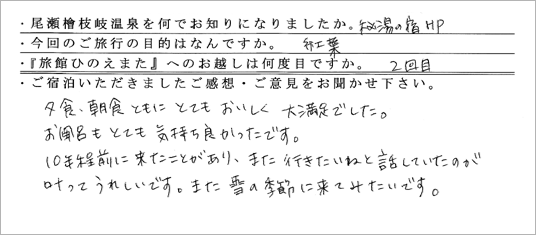 ・尾瀬檜枝岐温泉を何でお知りになりましたか。秘湯の宿HP
・今回のご旅行の目的はなんですか。 紅葉
・『旅館ひのえまた』へのお越しは何度目ですか。 2回目
・ご宿泊いただきましたご感想・ご意見をお聞かせ下さい。
夕食、朝食ともにとてもおいしく大満足でした。
お風呂もとても気持ち良かったです。
10年程前に来たことがあり、また行きたいねと話していたのが
叶ってうれしいです。また雪の季節に来てみたいです。